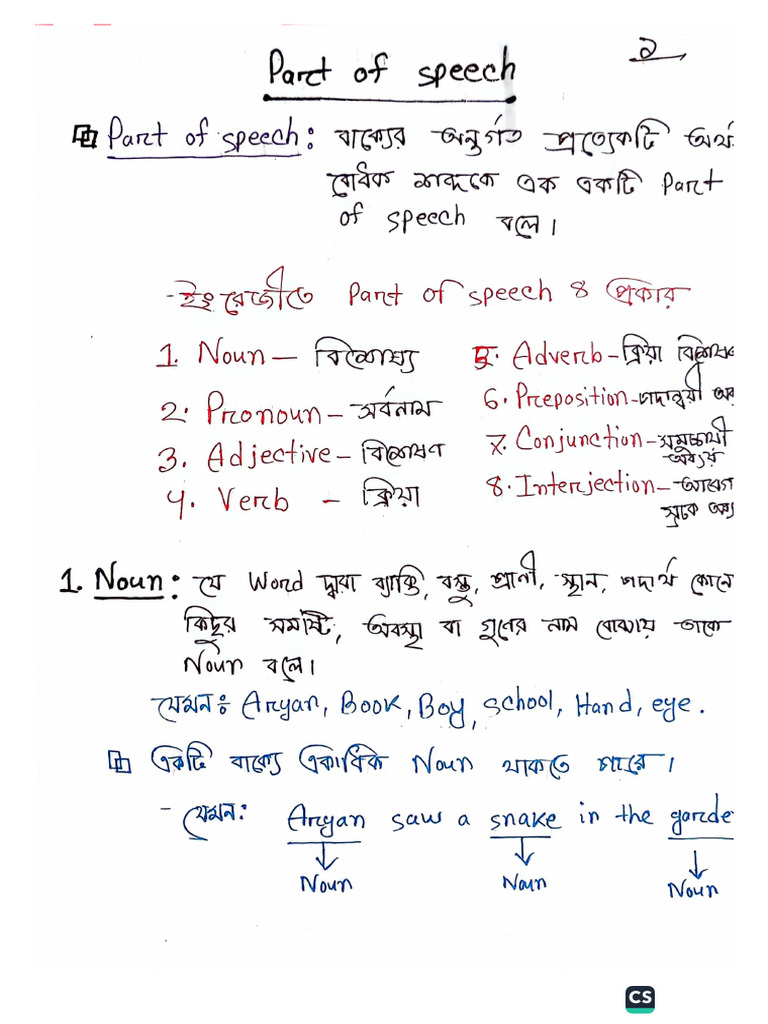 ২
Part of speech
Part of speech: বাক্যের অন্তর্গত প্রত্যেকটি অর্থ
বোধক শব্দকে এক একটি Part
of speech বলে।
- ইংরেজীতে Part of speech ৪ প্রকার
1. Noun — বিশেষ্য
2. Pronoun — সর্বনাম
3. Adjective — বিশেষণ
4. Verb — ক্রিয়া
5. Adverb - ক্রিয়া বিশেষণ
6. Preposition - পদান্বয়ী অব
7. Conjunction - সমুচ্চয়ী
অব্যয়
8. Interjection — আবেগ
সূচক অব্য
1. Noun: যে Word দ্বারা ব্যাক্তি, বস্তু, প্রাণী, স্থান, পদার্থ কোনো
কিছুর সমষ্টি, অবস্থা বা গুণের নাম বোঝায় তাকে
Noun বলে।
যেমনঃ Aryan, Book, Boy, school, Hand, eye.
একটি বাক্যে একাধিক Noun থাকতে পারে।
- যেমন: Aryan saw a snake in the garde
Noun Noun Noun
CS